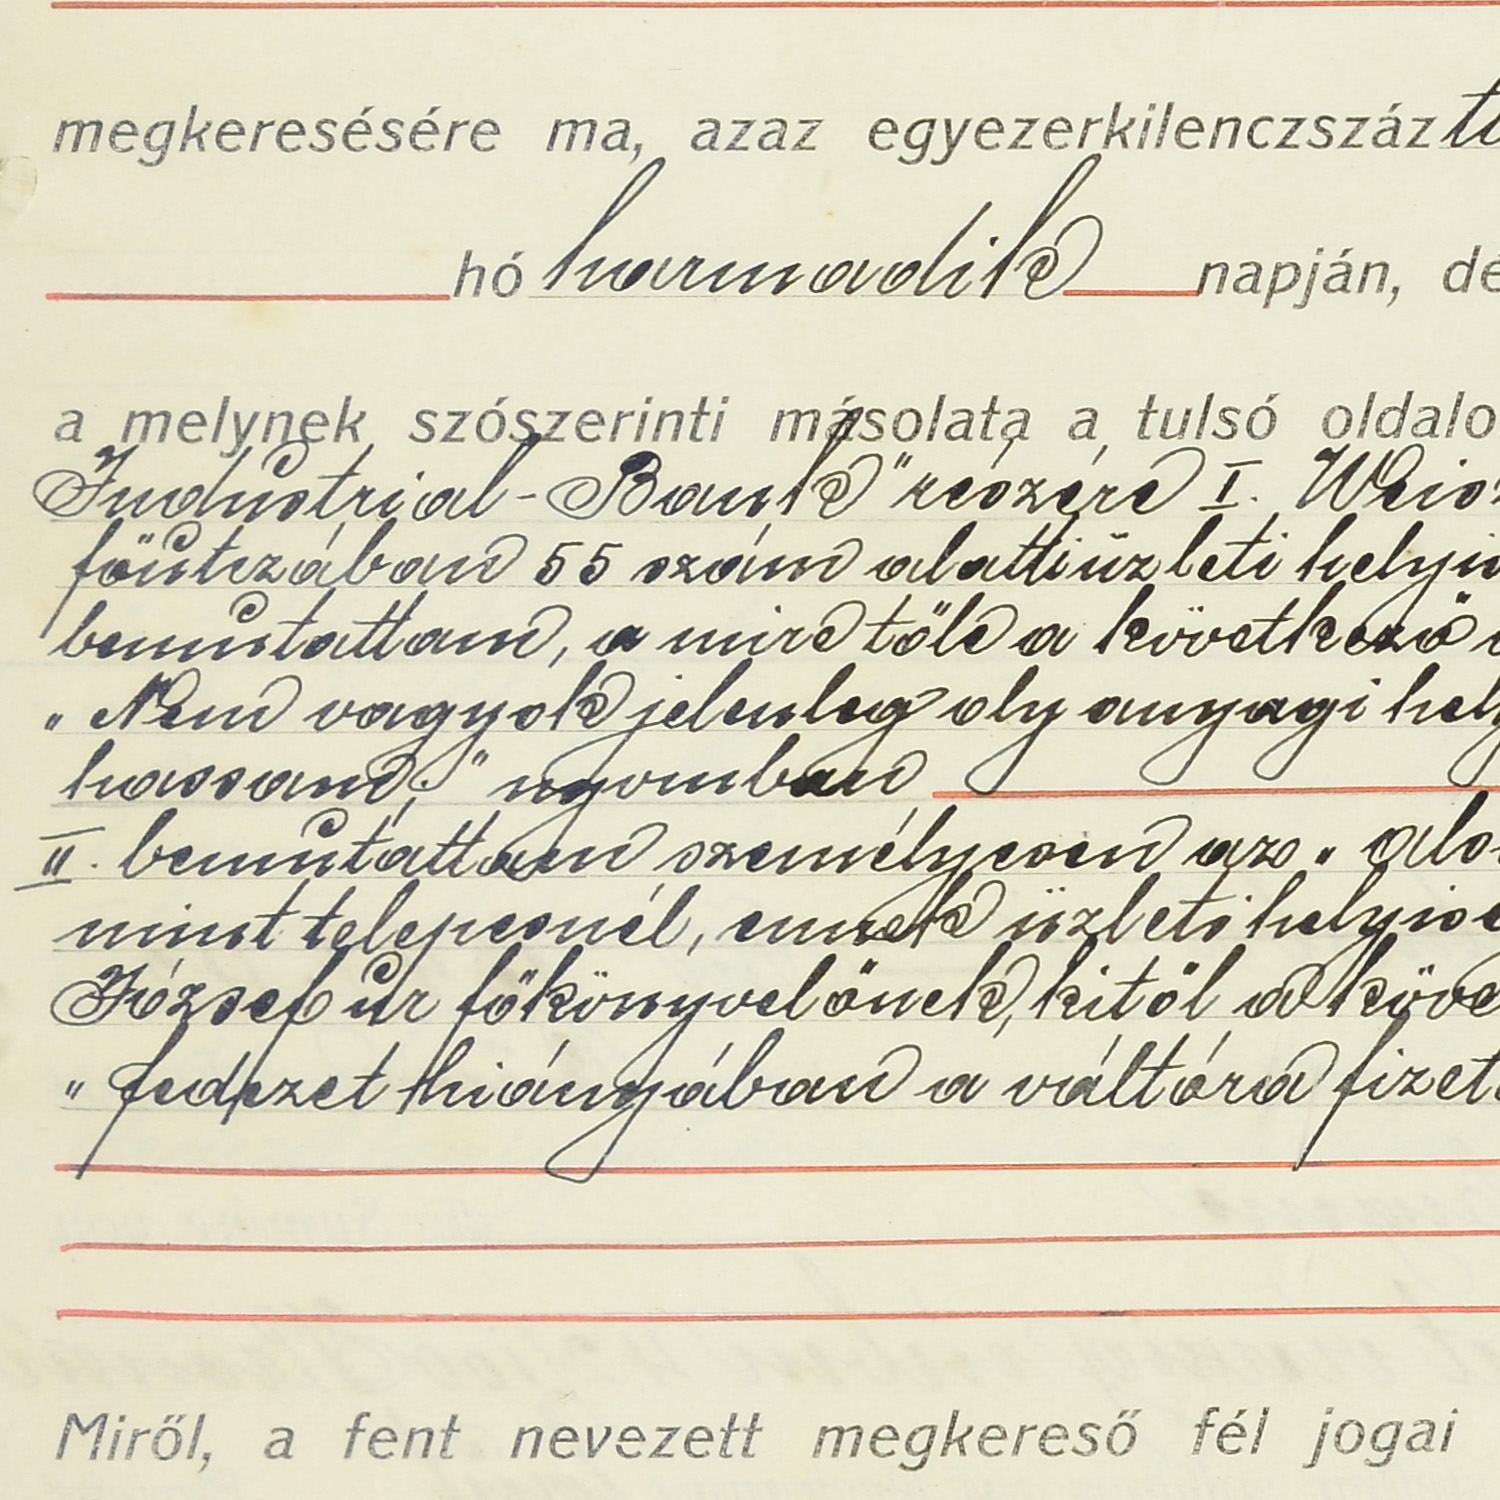 megkeresésére ma, azaz egyezerkilenczszáz
hó harmadik napján, dé
a melynek szószerinti másolata a tulsó oldalo
Industrial-Bank" részére I. Weisz
főutczában 55 szám alatti üzleti helyis
bemutattam, a mire tőle a következő
„Nem vagyok jelenleg oly anyagi hely
hassam;" nyomban
II. bemutattam személyesen az „
mint telepesnél, ennek üzleti helyisé
József úr főkönyvelőnek, kitől a köve
„fedezet hiányában a váltóra fizet
Miről, a fent nevezett megkereső fél jogai